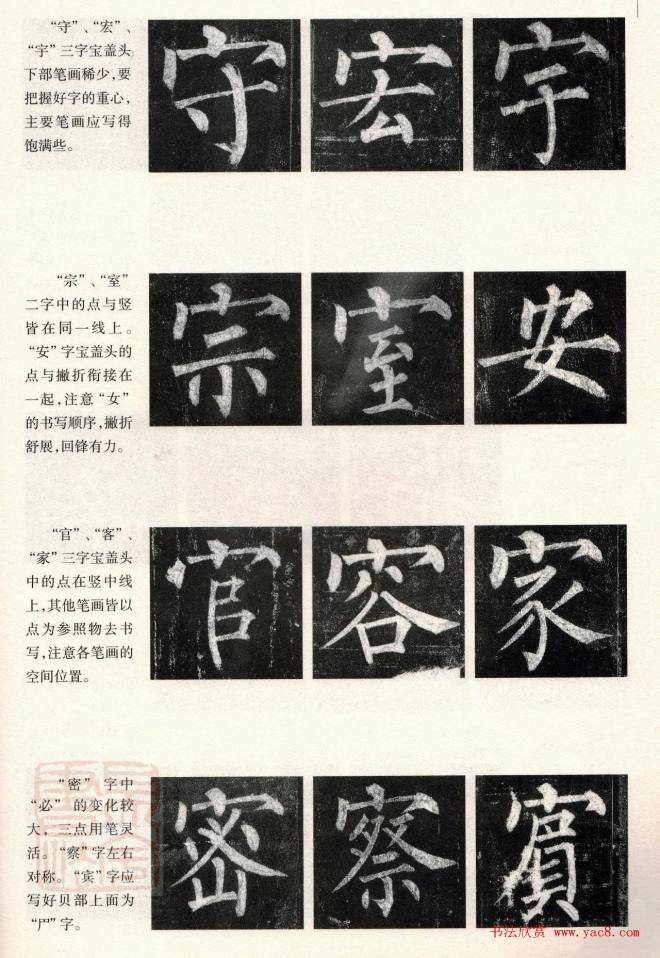 “守”、“宏”、
“宇”三字宝盖头
下部笔画稀少,要
把握好字的重心,
主要笔画应写得
饱满些。
守 宏 宇
“宗”、“室”
二字中的点与竖
皆在同一线上。
“安”字宝盖头的
点与撇折衔接在
一起,注意“女”
的书写顺序,撇折
舒展,回锋有力。
宗 室 安
“官”、“客”、
“家”三字宝盖头
中的点在竖中线
上,其他笔画皆以
点为参照物去书
写,注意各笔画的
空间位置。
官 容 家
“密”字中
“必”的变化较
大,三点用笔灵
活。“察”字左右
对称。“宾”字应
写好贝部上面为
“尸”字。
密 察 賓
书法欣赏 www.yac8.com